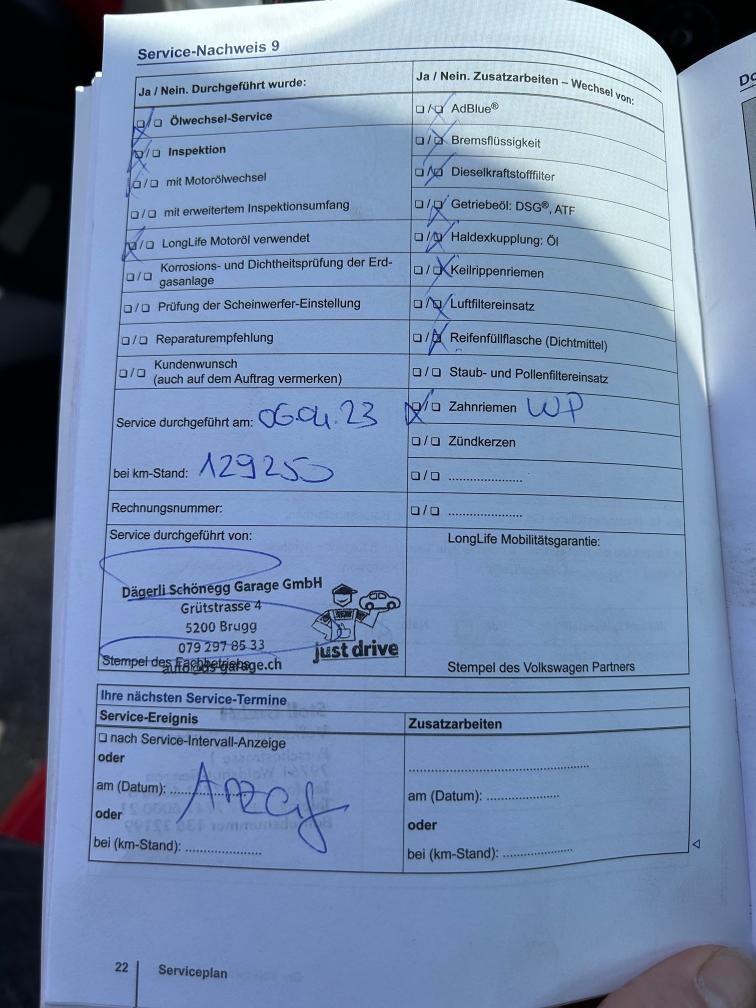 Service-Nachweis 9
Ja / Nein. Durchgeführt wurde:
Ölwechsel-Service
Inspektion
mit Motorölwechsel
mit erweitertem Inspektionsumfang
LongLife Motoröl verwendet
Korrosions- und Dichtheitsprüfung der Erd-
gasanlage
Prüfung der Scheinwerfer-Einstellung
Reparaturempfehlung
Kundenwunsch
(auch auf dem Auftrag vermerken)
Service durchgeführt am: 06.04.23
bei km-Stand: 129250
Rechnungsnummer:
Service durchgeführt von:
Dägerli Schönegg Garage GmbH
Grütstrasse 4
5200 Brugg
079 297 85 33
just drive
Stempel des Fachbetriebs
Ja / Nein. Zusatzarbeiten – Wechsel von:
AdBlue®
Bremsflüssigkeit
Dieselkraftstofffilter
Getriebeöl: DSG®, ATF
Haldexkupplung: Öl
Keilrippenriemen
Luftfiltereinsatz
Reifenfüllflasche (Dichtmittel)
Staub- und Pollenfiltereinsatz
Zahnriemen WP
Zündkerzen
LongLife Mobilitätsgarantie:
Stempel des Volkswagen Partners
Ihre nächsten Service-Termine
Service-Ereignis
nach Service-Intervall-Anzeige
oder
am (Datum):
oder
bei (km-Stand):
Zusatzarbeiten
am (Datum):
oder
bei (km-Stand):
22
Serviceplan